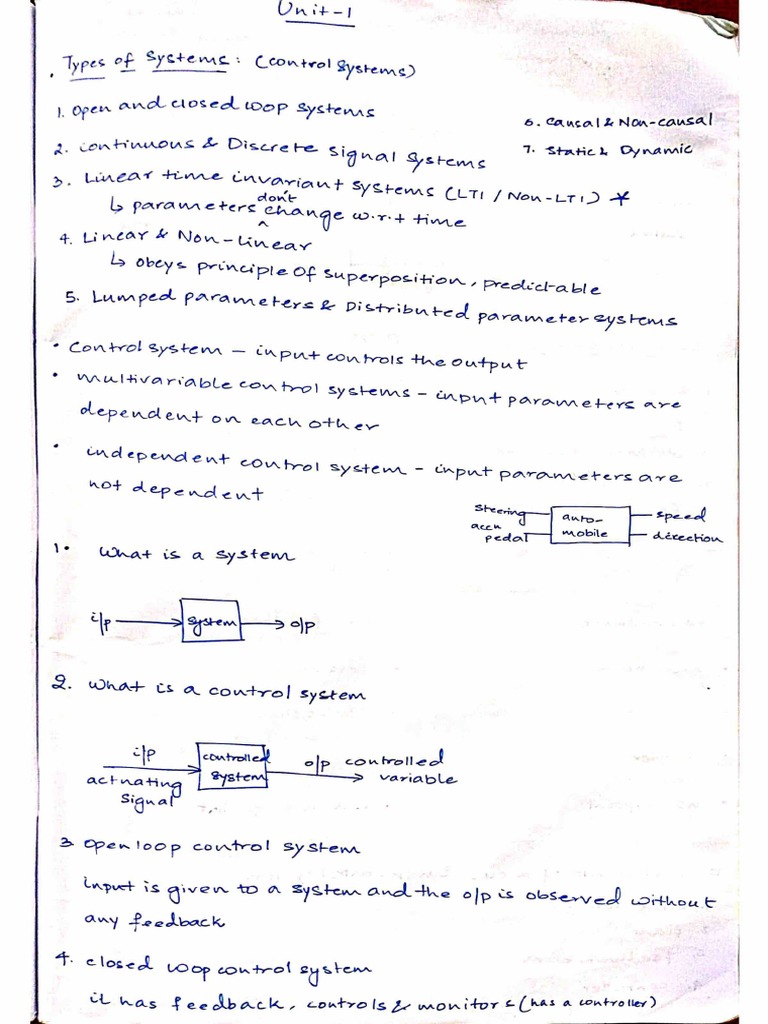 Unit-1
Types of Systems: (control systems)
1. Open and closed loop systems
2. Continuous & Discrete signal systems
3. Linear time invariant systems (LTI / Non-LTI) *
↳ parameters don't change w.r.t time
4. Linear & Non-linear
↳ obeys principle of superposition, predictable
5. Lumped parameters & Distributed parameter systems
6. causal & Non-causal
7. Static & Dynamic
• Control system – input controls the output
• multivariable control systems – input parameters are
dependent on each other
• independent control system – input parameters are
not dependent
steering
accn
pedal
auto-
mobile
speed
direction
1. What is a system
i/p
system
o/p
2. What is a control system
i/p
actuating
signal
controlled
system
o/p controlled
variable
3 Open loop control system
input is given to a system and the o/p is observed without
any feedback
4. closed loop control system
it has feedback, controls & monitors (has a controller)